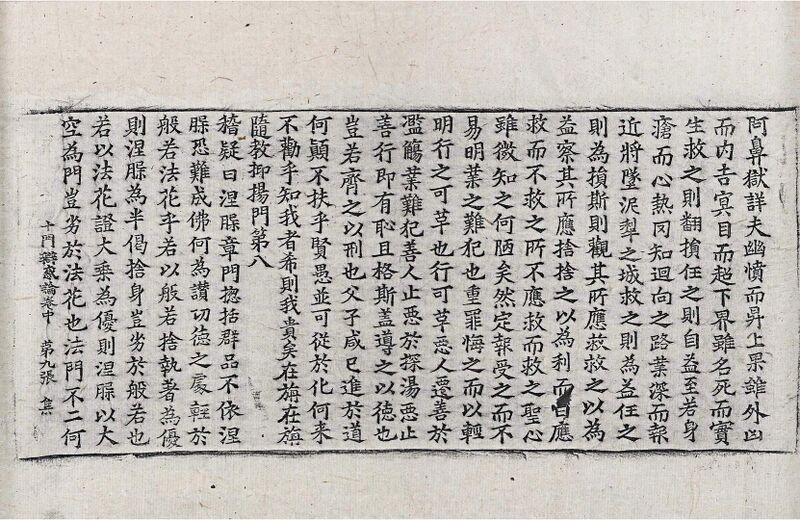 阿鼻獄詳夫幽憤而昇上果雖外凶
而内吉冥目而超下界雖名死而實
生救之則翻損任之則自益至若身
瘡而心熱罔知迴向之路業深而報
近將墜泥犁之城救之則為益任之
則為損斯則觀其所應救救之以為
益察其所應捨捨之以為利而曰應
救而不救之所不應救而救之聖心
雖微知之何陋矣然定報受之而不
易明業之難犯也重罪悔之而以輕
明行之可革也行可革惡人遷善於
濫觴業難犯善人止惡於探湯惡止
善行即有恥且格斯蓋導之以德也
豈若齊之以刑也父子咸已進於道
何顛不扶乎賢愚並可從於化何来
不勸乎知我者希則我貴矣在旃在旃
隨教抑揚門第八
稽疑曰涅槃章門捴括群品不依涅
槃恐難成佛何為讃功德之處輊於
般若法花乎若以般若捨執著為優
則涅槃為半偈捨身豈劣於般若也
若以法花證大乘為優則涅槃以大
空為門豈劣於法花也法門不二何
十門辯惑論卷中 第九張